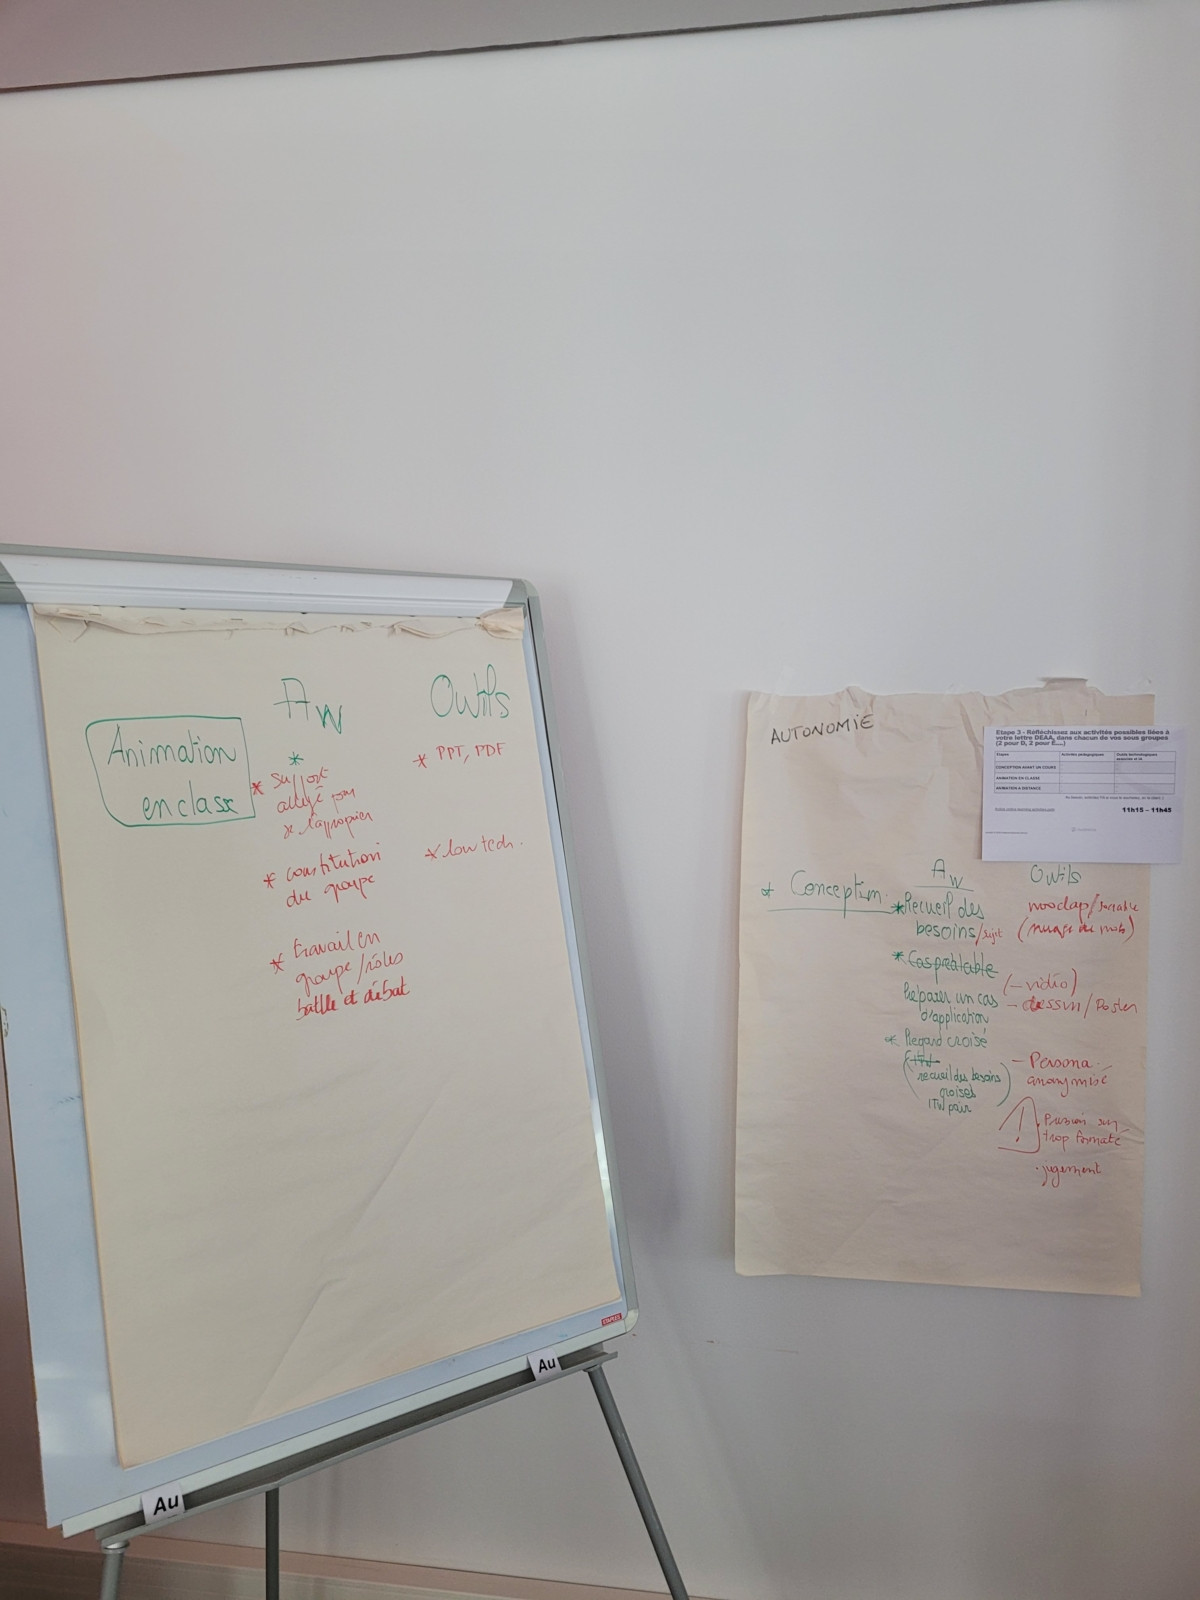 Au
Outils
Animation
en classe
* PPT, PDF
*
* Support
allégé pour
se l'approprier
* constitution
du groupe
* low tech.
* travail en
groupe/rôles
battle et débat
STAPLES
Au
Au
AUTONOMIE
Etape 3 - Réfléchissez aux activités possibles liées à
votre lettre DEAA, dans chacun de vos sous groupes
(2 pour D, 2 pour E....)
Etapes
Activités pédagogiques
Outils technologiques
CONCEPTION AVANT UN COURS
ANIMATION EN CLASSE
ANIMATION A DISTANCE
11h15 – 11h45
* Conception
Au
Outils
* Recueil des
besoins/sujet
wooclap/
(nuage de mots)
* Cas préalable
Préparer un cas
d'application
(- vidéo)
- dessin/Poster
* Regard croisé
(ITW
recueil des besoins
croisés
ITW pair)
- Persona
anonymisé
! 
trop formaté
• jugement